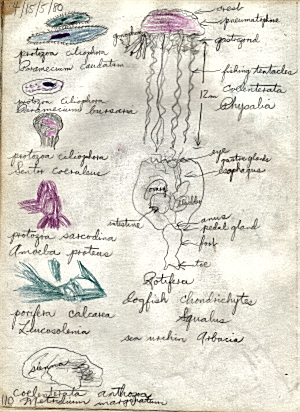 4/15/5/80
crest
pneumatophore
gonophore
gastrozoid
protozoa ciliophora
Paramecium caudatum
fishing tentacles
12m
coelenterata
Physalia
protozoa ciliophora
Paramecium bursaria
eye
gastric glands
esophagus
protozoa ciliophora
Sentor coeruleus
ovary
intestine
anus
pedal gland
foot
toe
protozoa sarcodina
Amoeba proteus
Rotifera
dogfish Chondrichytes
Squalus
porifera calcarea
Leucosolenia
sea urchin Arbacia
pinna
coelenterata anthozoa
110 Metridium marginatum